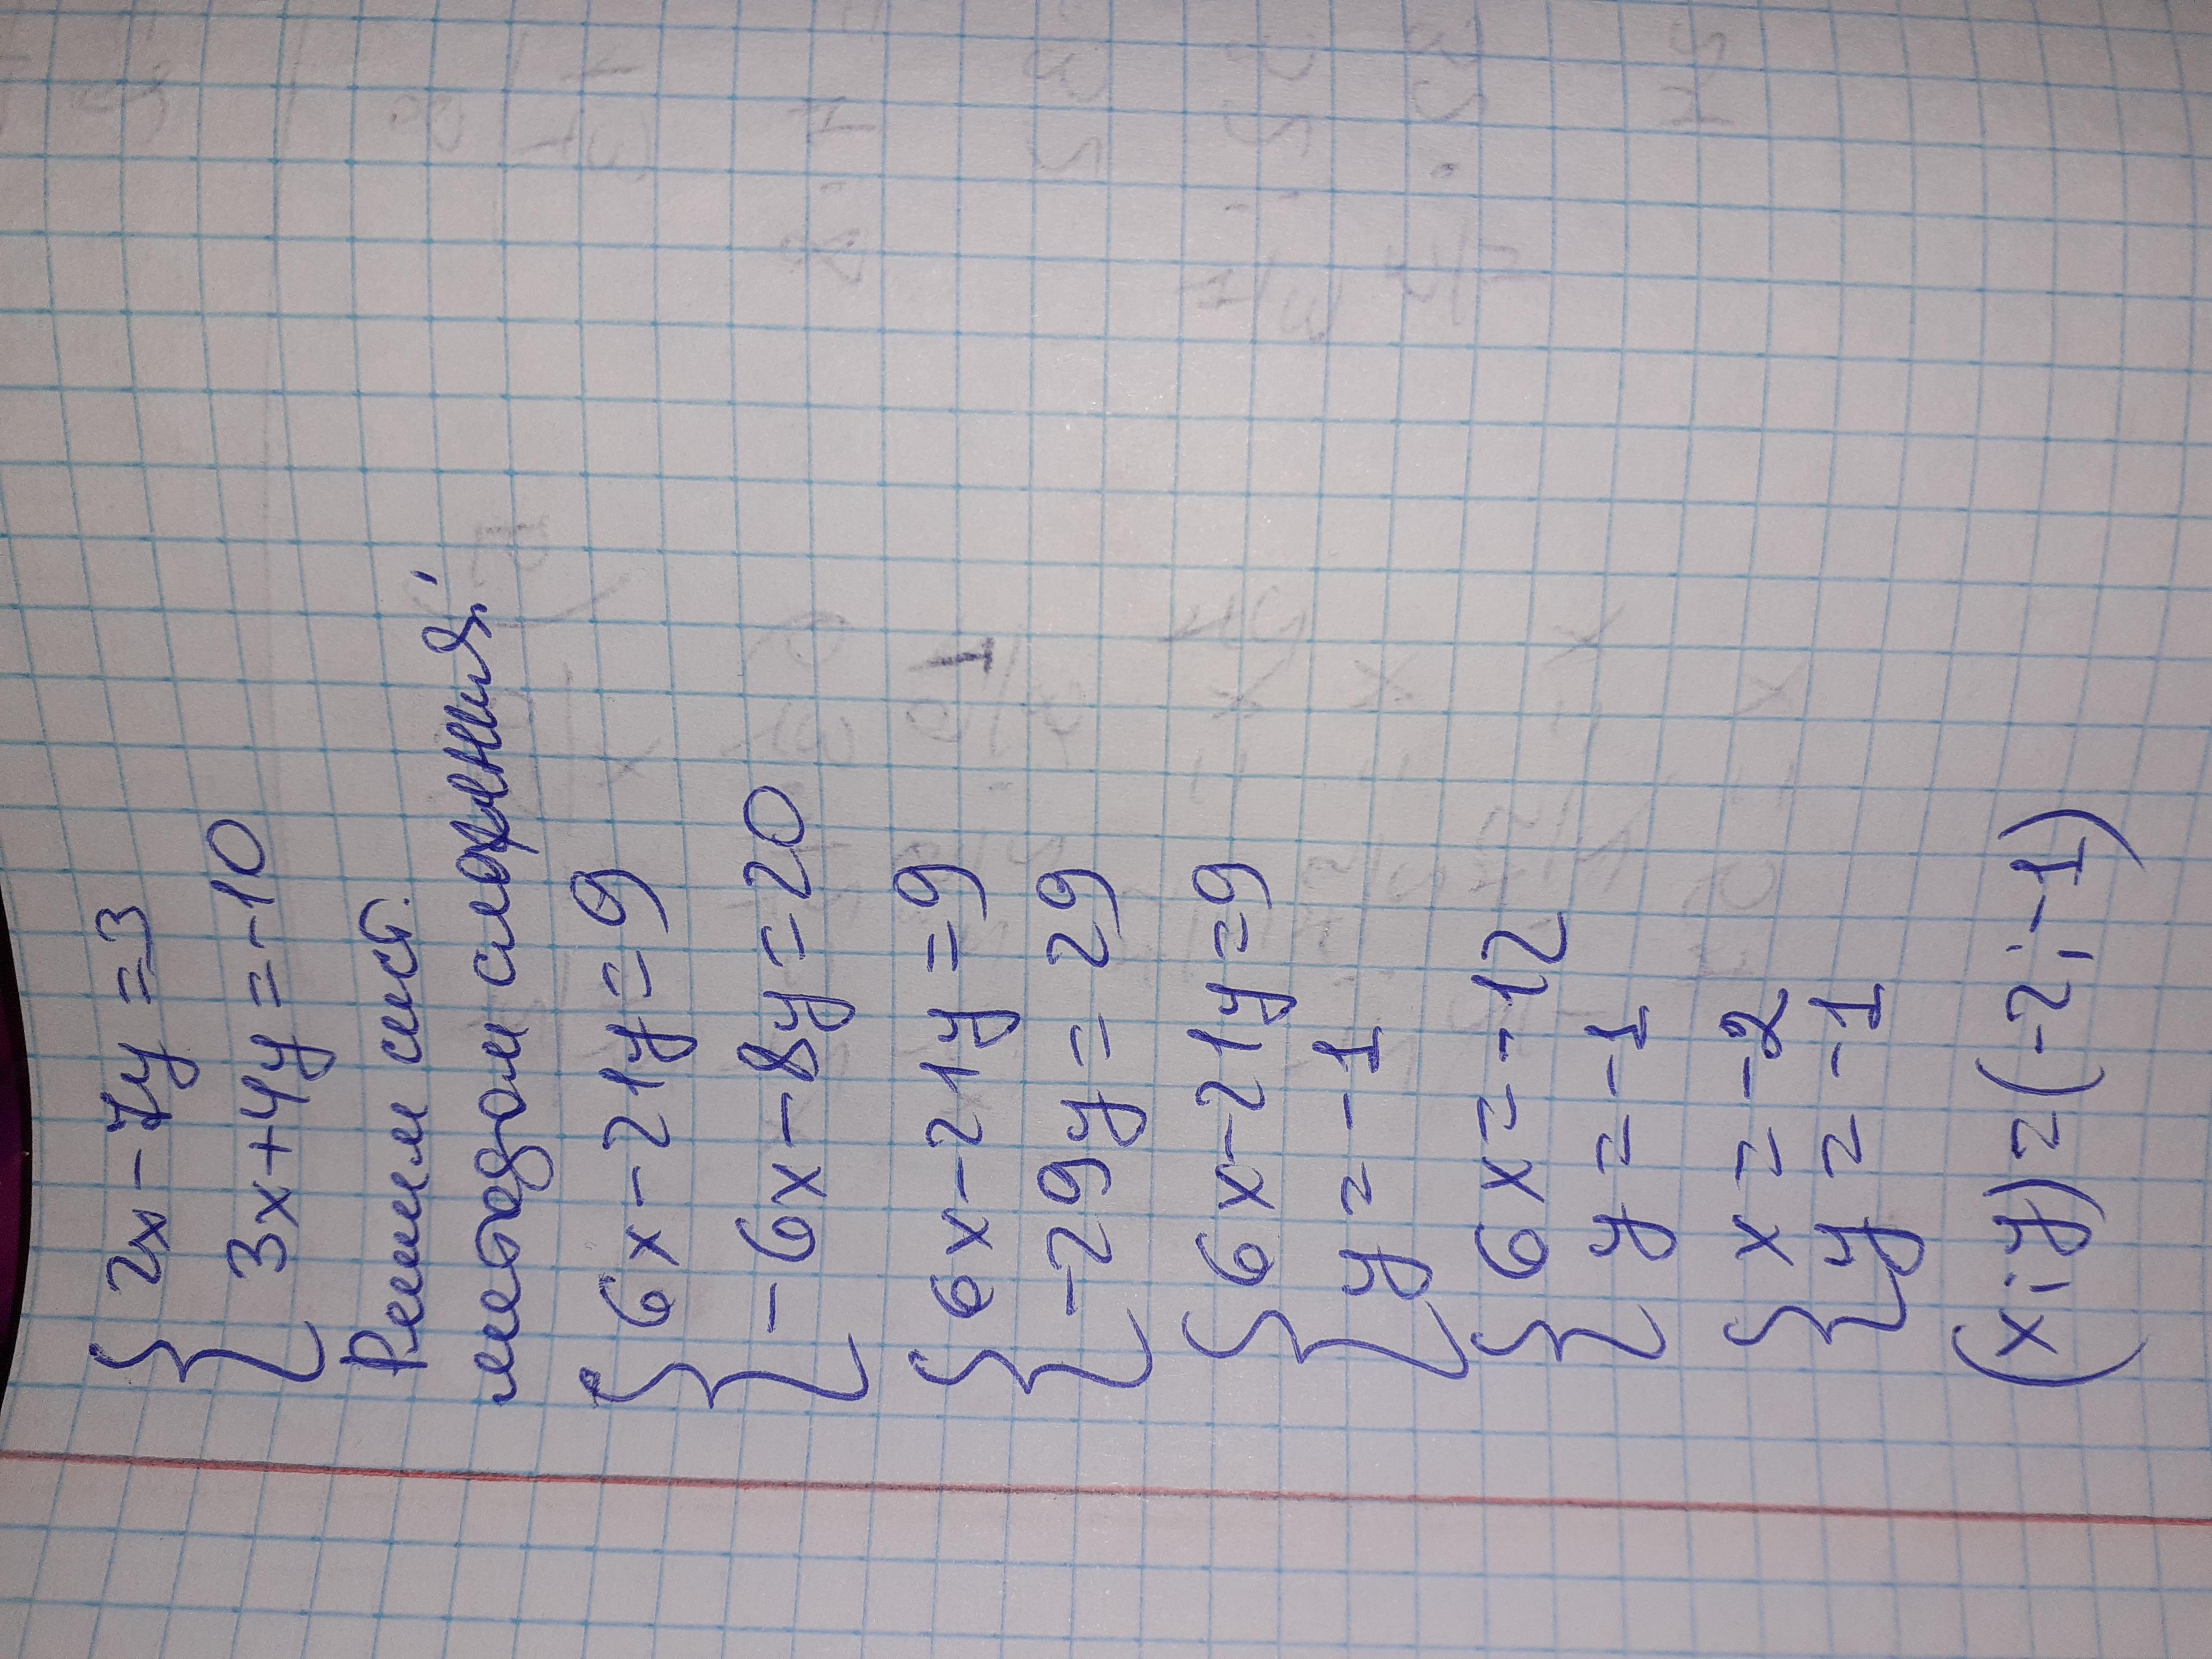 2x-7y=3
3x+4y=-10
Решим сист.
методом сложения:
6x-21y=9
-6x-8y=20
6x-21y=9
-29y=29
6x-21y=9
y=-1
6x=-12
y=-1
x=-2
y=-1
(x;y)=(-2;-1)